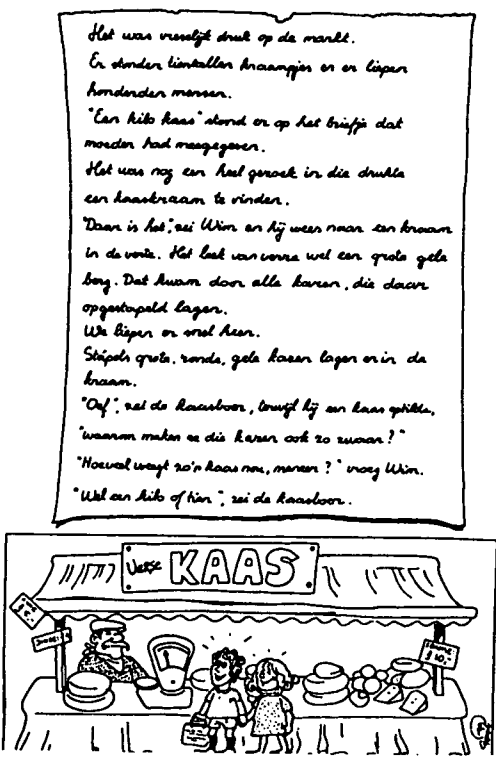 Het was vreselijk druk op de markt.
Er stonden tientallen kraampjes en er liepen
honderden mensen.
"Een kilo kaas" stond er op het briefje dat
moeder had meegegeven.
Het was nog een heel gezoek in die drukte
een kaaskraam te vinden.
"Daar is het", zei Wim en hij wees naar een kraam
in de verte. Het leek van verre wel een grote gele
berg. Dat kwam door alle kazen, die daar
opgestapeld lagen.
We liepen er snel heen.
Stapels grote, ronde, gele kazen lagen er in de
kraam.
"Oef", zei de kaasboer, terwijl hij een kaas optilde,
"waarom maken ze die kazen ook zo zwaar?"
"Hoeveel weegt zo'n kaas nou, meneer?" vroeg Wim.
"Wel een kilo of tien", zei de kaasboer.
Verse KAAS